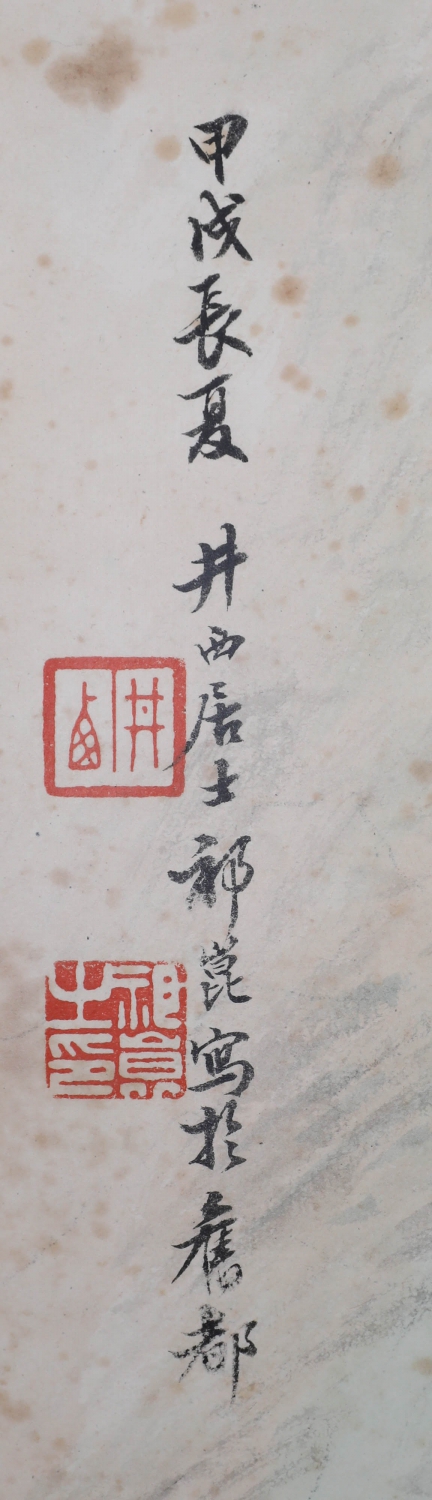 甲戌長夏 井西居士祁崑寫於舊都
井西